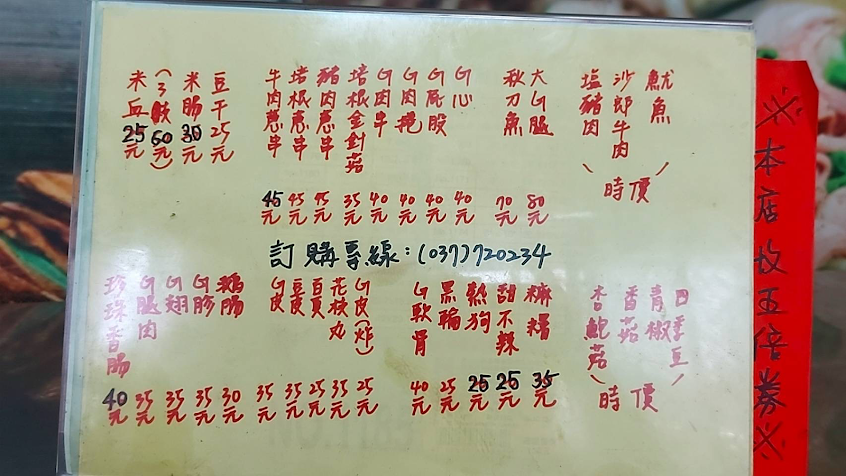 魷魚
沙郎牛肉
塩豬肉
時價
大G腿 80元
秋刀魚 70元
G心 40元
G屁股 40元
G肉捲 40元
G肉串 40元
培根金針菇 35元
豬肉蔥串 45元
培根蔥串 45元
牛肉蔥串 45元
豆干 25元
米腸 30元
(3蚊 60元)
米血 25元
訂購專線:(037)720234
四季豆
青椒
香菇
杏鮑菇
時價
麻糬 35元
甜不辣 25元
熱狗 25元
黑輪 25元
G軟骨 40元
G皮(炸) 25元
花枝丸 35元
百頁 25元
豆皮 35元
G皮 35元
鵝腸 30元
G胗 35元
G翅 35元
G腿肉 35元
珍珠香腸 40元
※本店收五倍券※